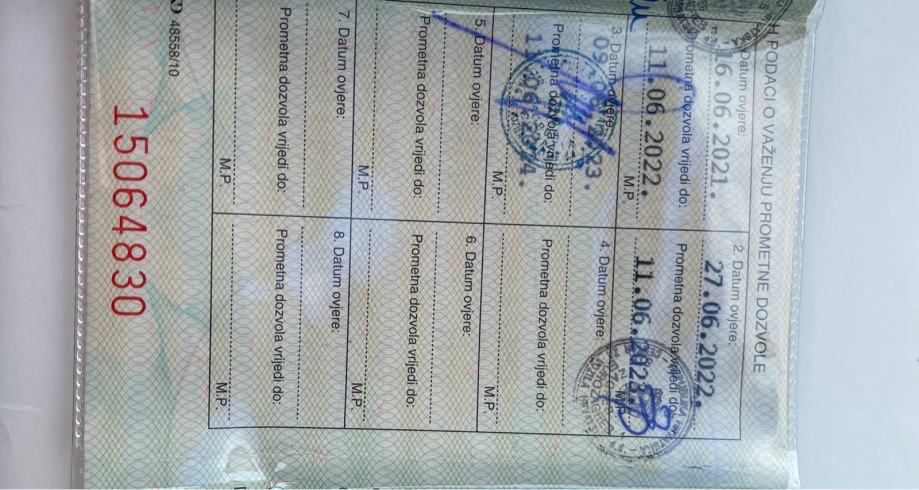 PODACI O VAŽENJU PROMETNE DOZVOLE
Datum ovjere:
16.06.2021.
Prometna dozvola vrijedi do:
11.06.2022.
M.P.
2. Datum ovjere:
27.06.2022.
Prometna dozvola vrijedi do:
11.06.2023.
M.P.
3. Datum ovjere:
Prometna dozvola vrijedi do:
M.P.
4. Datum ovjere:
Prometna dozvola vrijedi do:
M.P.
5. Datum ovjere:
Prometna dozvola vrijedi do:
M.P.
6. Datum ovjere:
Prometna dozvola vrijedi do:
M.P.
7. Datum ovjere:
Prometna dozvola vrijedi do:
M.P.
8. Datum ovjere:
Prometna dozvola vrijedi do:
M.P.
48558/10
15064830